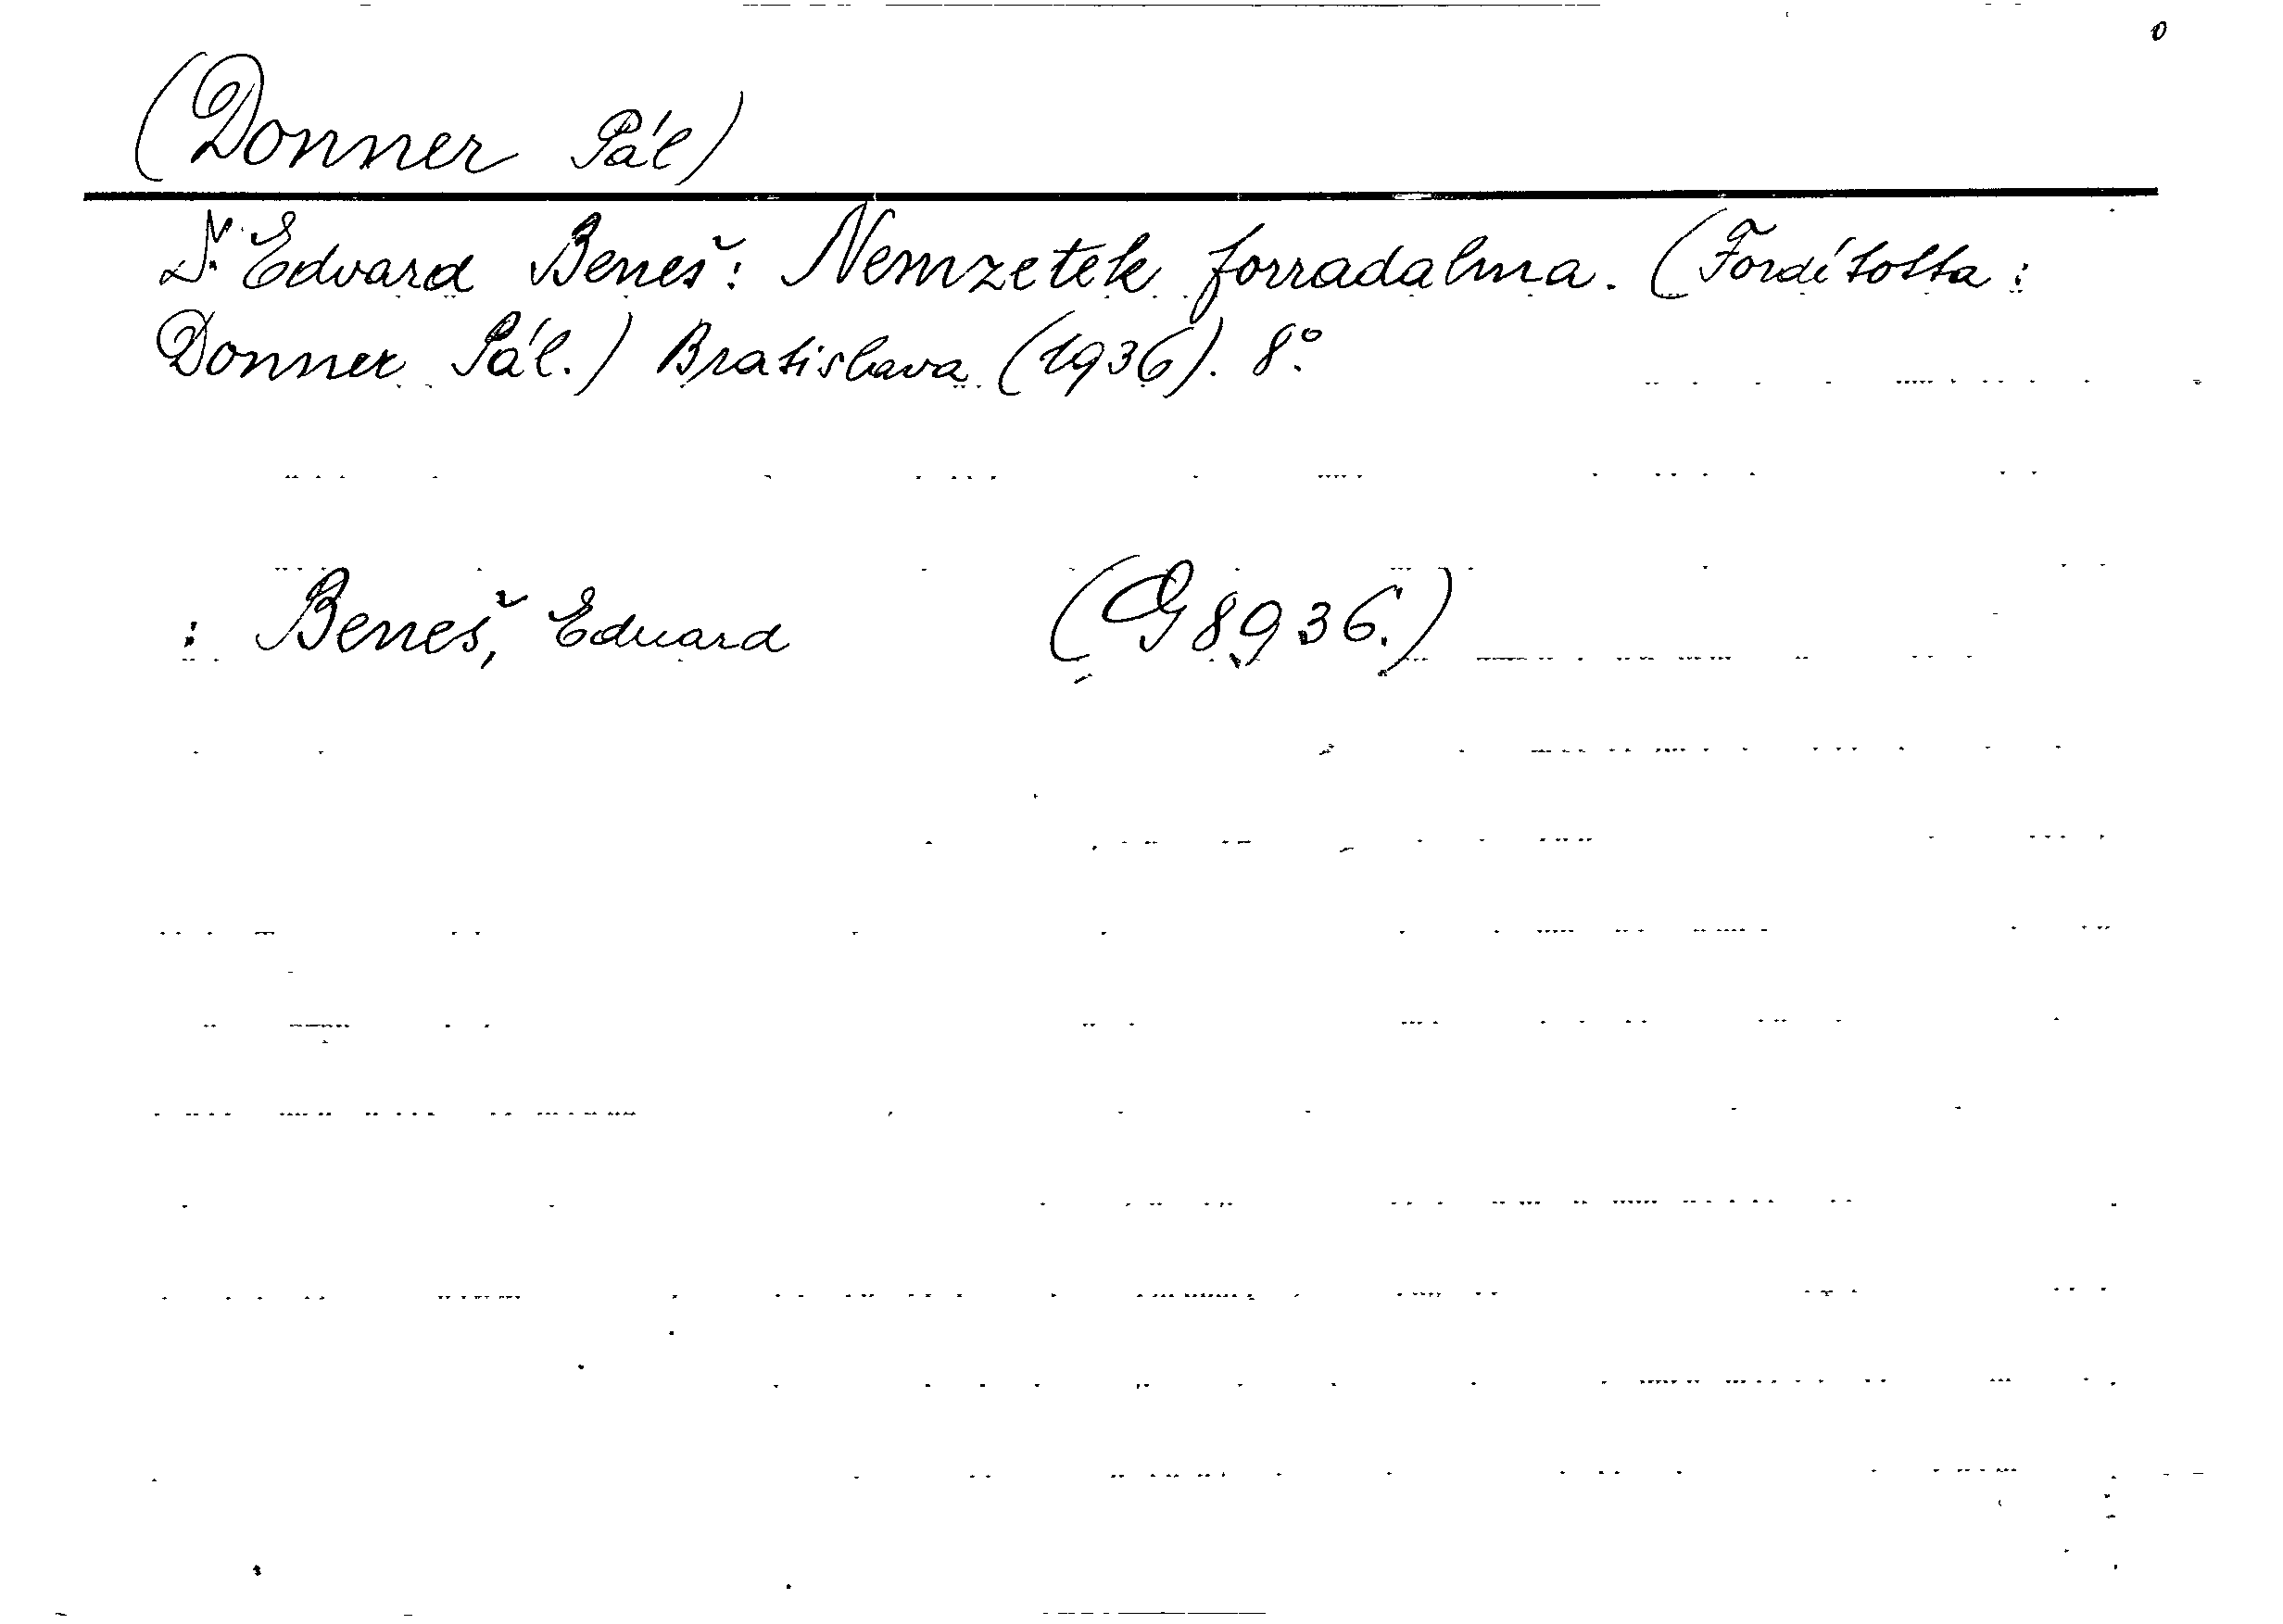 (Donner Pál)
Dr. Edvard Beneš: Nemzetek forradalma. (Fordította:
Donner Pál.) Bratislava (1936). 8°.
: Beneš, Eduard (G 8936.)